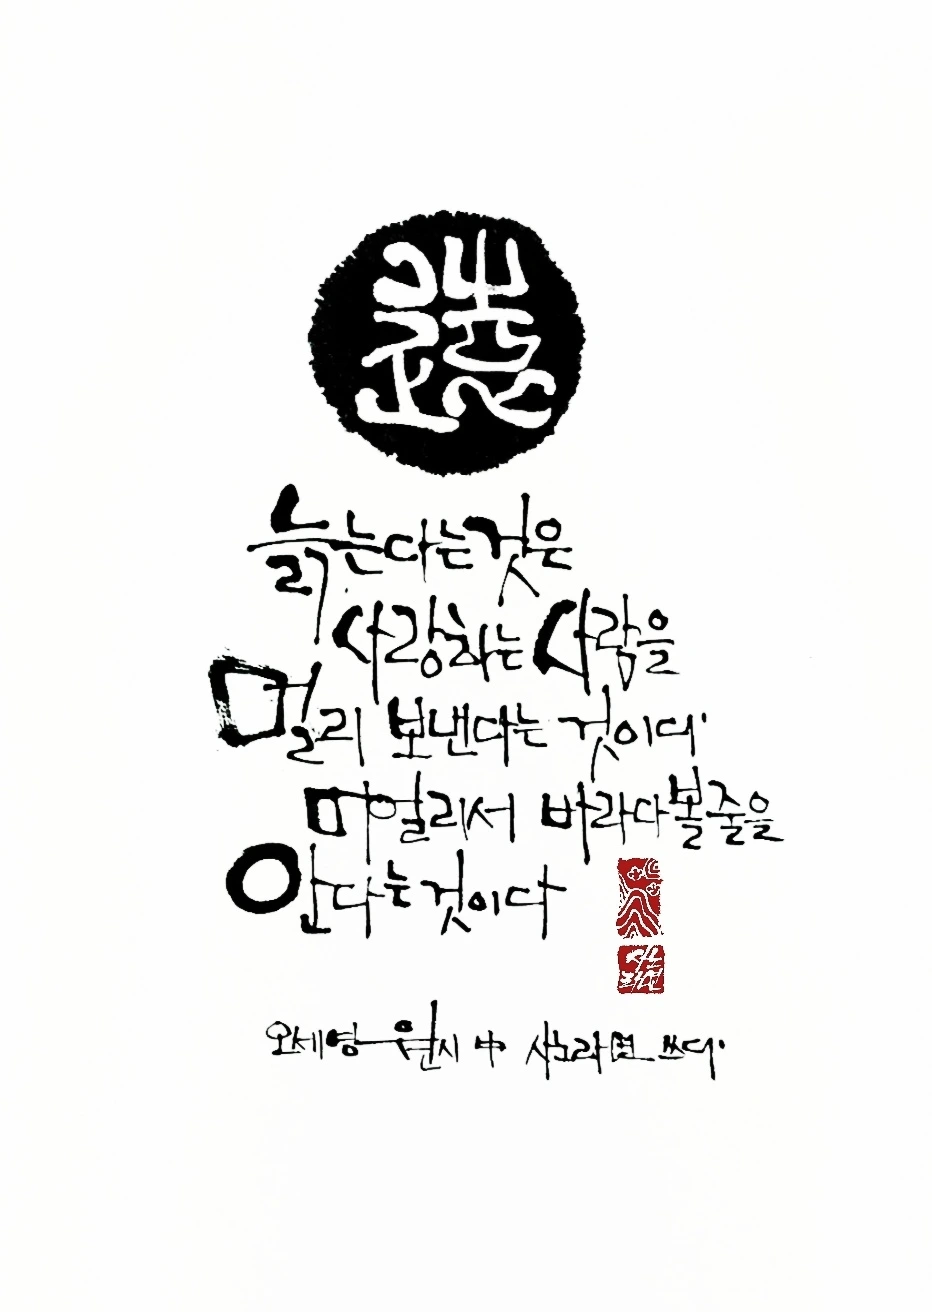 遠
늙는다는 것은
사랑하는 사람을
멀리 보낸다는 것이다
머얼리서 바라다볼 줄을
안다는 것이다
사노
라면
오세영 원시 中 사노라면 쓰다